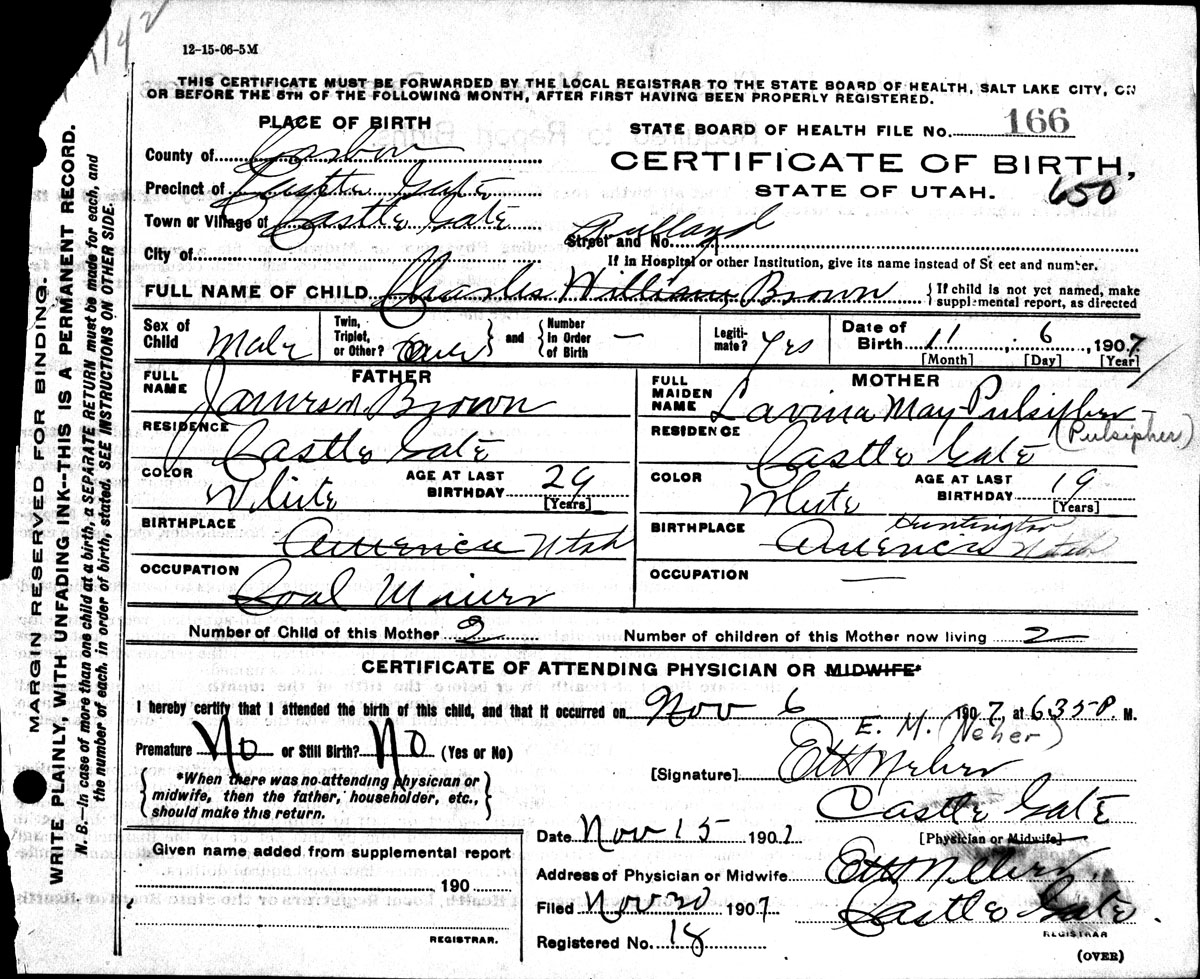 142
12-15-06-5M
THIS CERTIFICATE MUST BE FORWARDED BY THE LOCAL REGISTRAR TO THE STATE BOARD OF HEALTH, SALT LAKE CITY, ON
OR BEFORE THE 5TH OF THE FOLLOWING MONTH, AFTER FIRST HAVING BEEN PROPERLY REGISTERED.
PLACE OF BIRTH
STATE BOARD OF HEALTH FILE No. 166
County of Carbon
CERTIFICATE OF BIRTH,
Precinct of Castle Gate
STATE OF UTAH.
650
Town or Village of Castle Gate
Street and No.
City of
If in Hospital or other Institution, give its name instead of St eet and number.
FULL NAME OF CHILD Charles William Brown
{If child is not yet named, make
supplemental report, as directed
Sex of Child Male
Twin, Triplet, or Other?
and
Number In Order of Birth —
Legitimate? Yes
Date of Birth 11 6, 1907
[Month] [Day] [Year]
FATHER
FULL NAME James M Brown
RESIDENCE Castle Gate
COLOR White
AGE AT LAST BIRTHDAY 29
[Years]
BIRTHPLACE America Utah
OCCUPATION Coal Miner
MOTHER
FULL MAIDEN NAME Lavina May Pulsipher
(Pulsipher)
RESIDENCE Castle Gate
COLOR White
AGE AT LAST BIRTHDAY 19
[Years]
BIRTHPLACE America Huntington Utah
OCCUPATION —
Number of Child of this Mother 2
Number of children of this Mother now living 2
CERTIFICATE OF ATTENDING PHYSICIAN OR MIDWIFE*
I hereby certify that I attended the birth of this child, and that it occurred on Nov 6 1907, at 6 35 P. M.
Premature No or Still Birth? No (Yes or No)
E. M. (Neher)
*When there was no attending physician or
midwife, then the father, householder, etc.,
should make this return.
[Signature] Neher
Castle Gate
[Physician or Midwife]
Date Nov 15 1907
Given name added from supplemental report
190
REGISTRAR.
Address of Physician or Midwife
Filed Nov 30 1907
Castle Gate
REGISTRAR
Registered No. 18
(OVER)
MARGIN RESERVED FOR BINDING.
WRITE PLAINLY, WITH UNFADING INK--THIS IS A PERMANENT RECORD.
N. B.—In case of more than one child at a birth, a SEPARATE RETURN must be made for each, and
the number of each, in order of birth, stated. SEE INSTRUCTIONS ON OTHER SIDE.